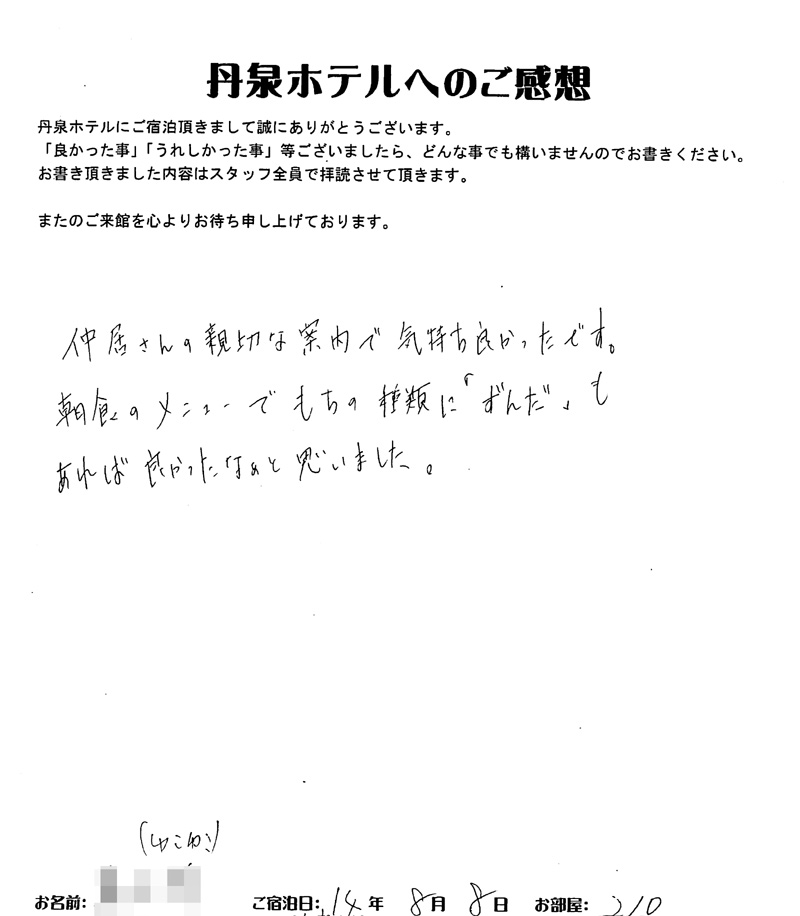 丹泉ホテルへのご感想
丹泉ホテルにご宿泊頂きまして誠にありがとうございます。
「良かった事」「うれしかった事」等ございましたら、どんな事でも構いませんのでお書きください。
お書き頂きました内容はスタッフ全員で拝読させて頂きます。
またのご来館を心よりお待ち申し上げております。
仲居さんの親切な案内で気持ち良かったです。
朝食のメニューでもちの種類に「ずんだ」も
あれば良かったなぁと思いました。
お名前: ご宿泊日: 14年 8月 8日 お部屋: 210